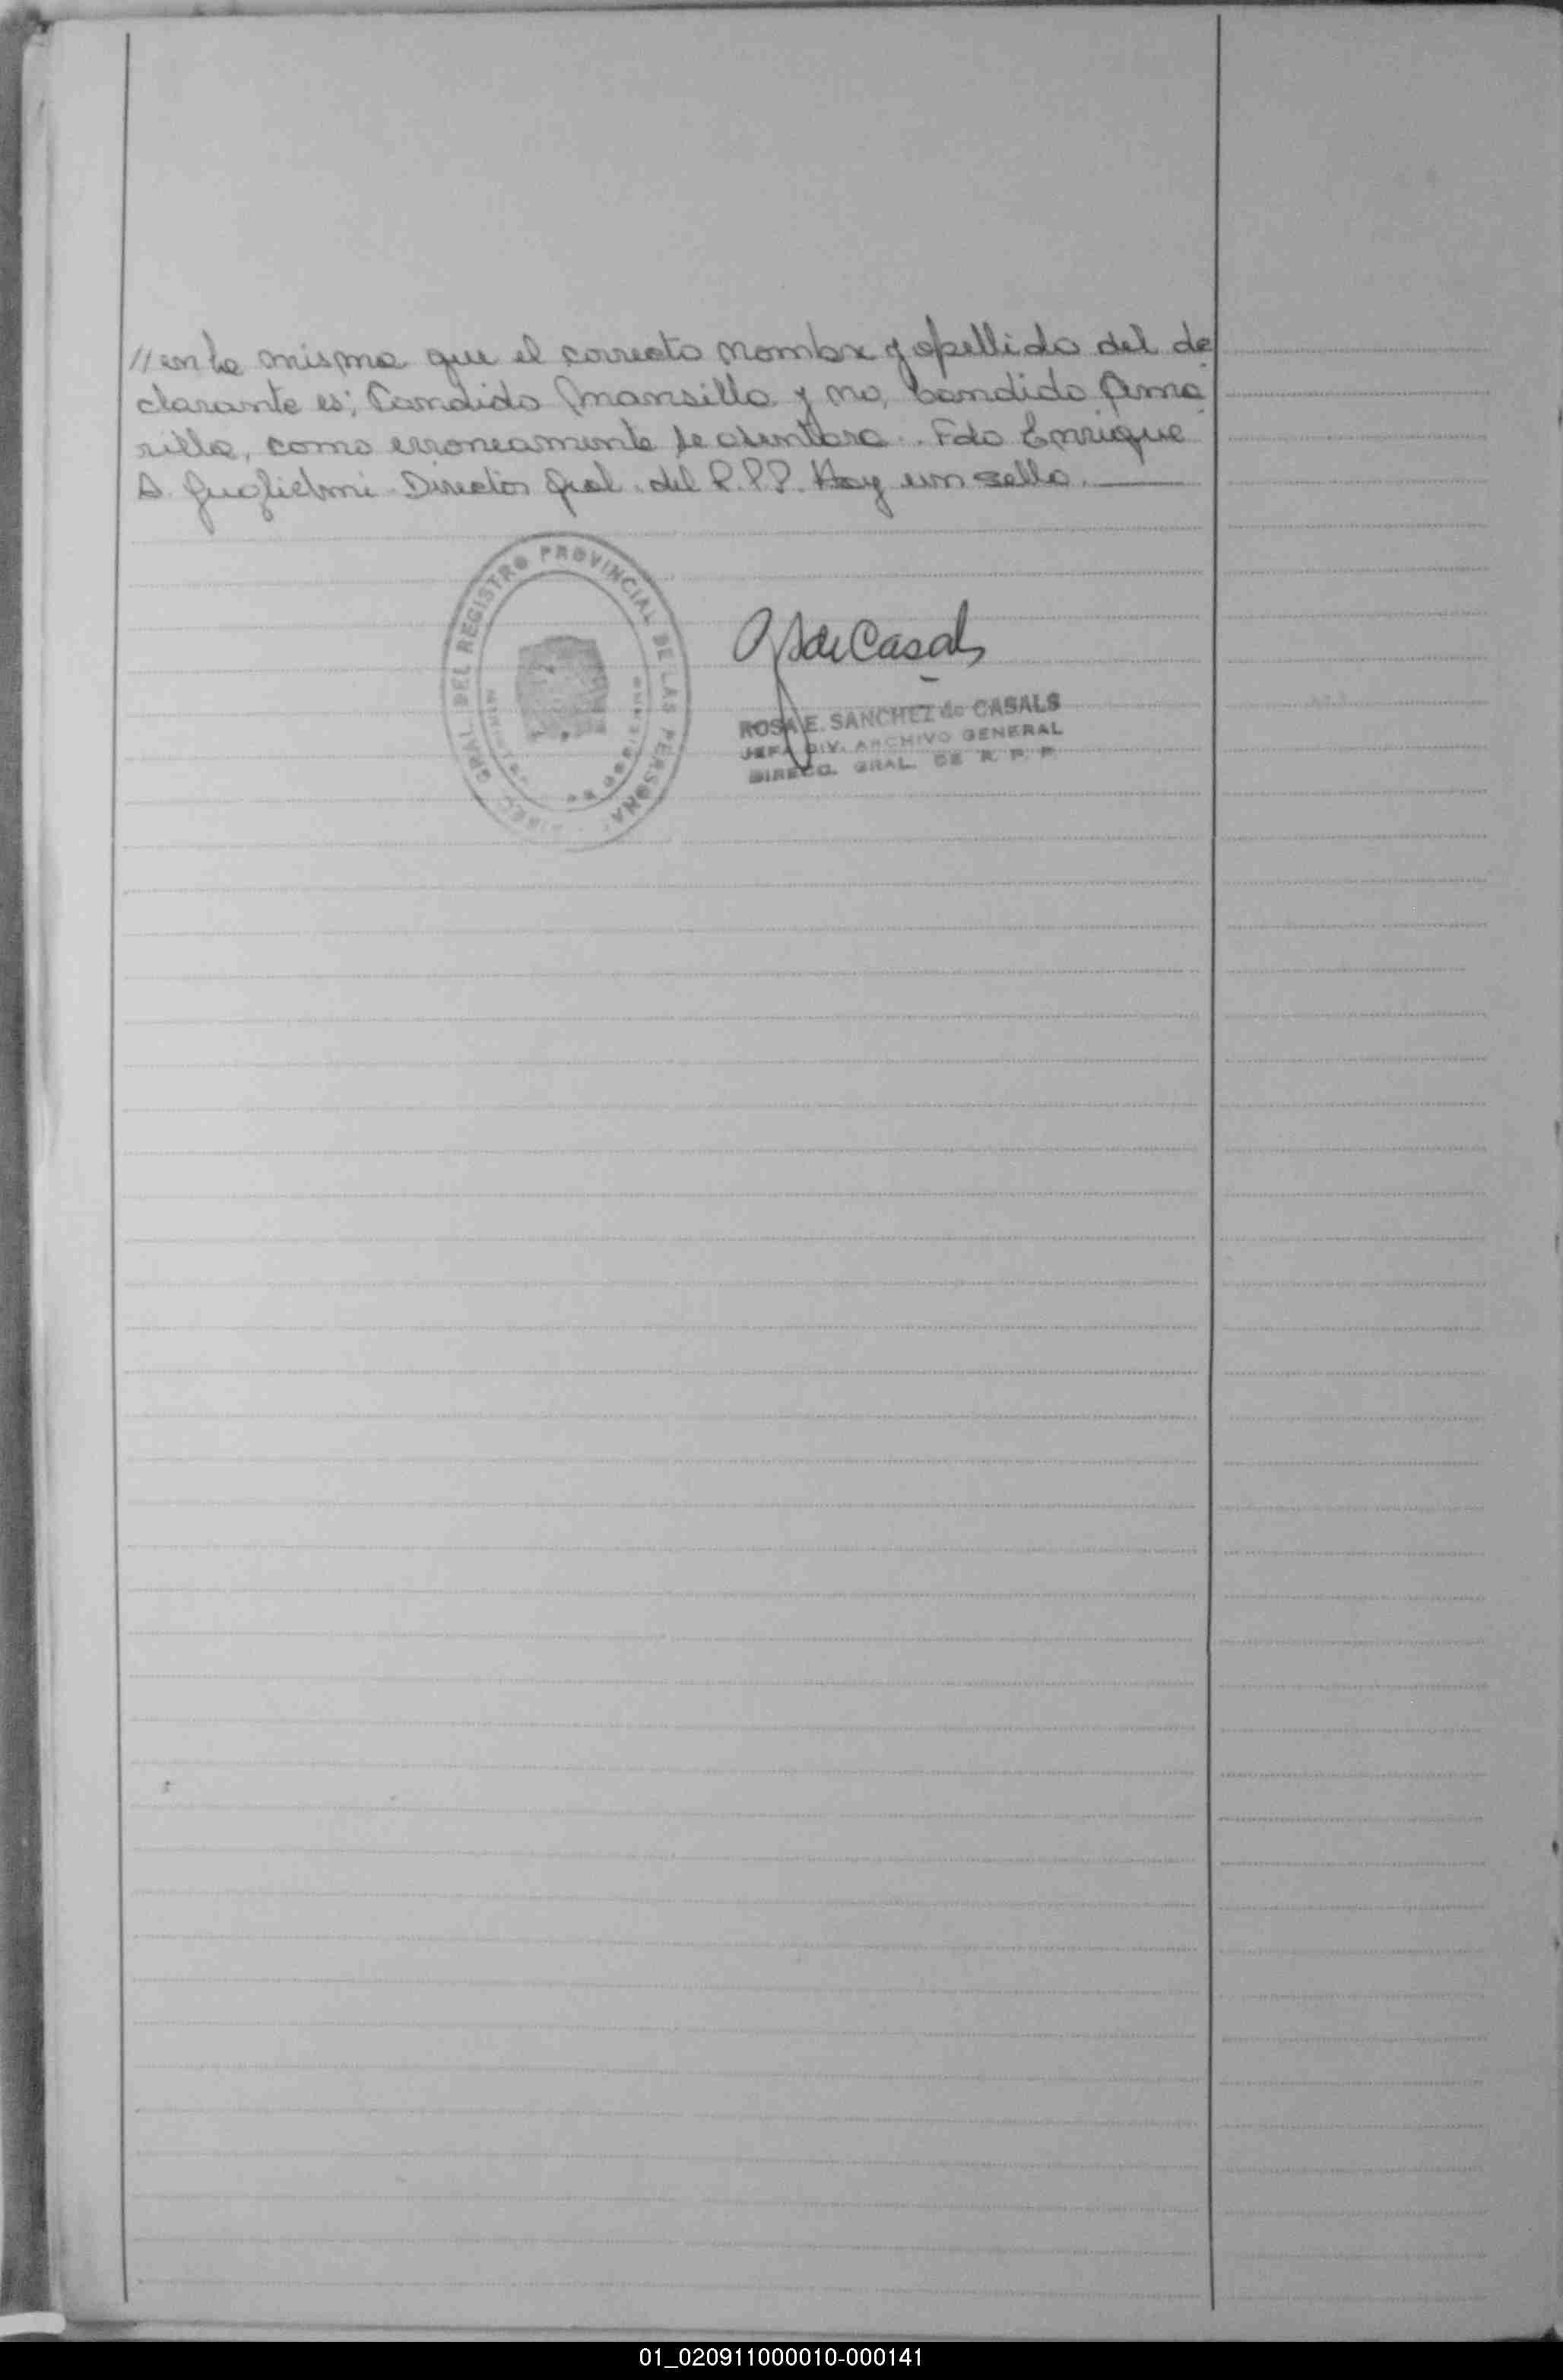 // en la misma que el correcto nombre y apellido del de
clarante es; Candido Mansilla y no, Candido Ama
rilla, como erroneamente se asentara. Fdo Enrique
A. Guglielmi - Director Gral. del R.P.P. Hay un sello.
DIREC. GRAL. DEL REGISTRO PROVINCIAL DE LAS PERSONAS
de Casals
ROSA E. SANCHEZ de CASALS
JEFA DIV. ARCHIVO GENERAL
DIRECC. GRAL. DE R. P. P.
01_020911000010-000141